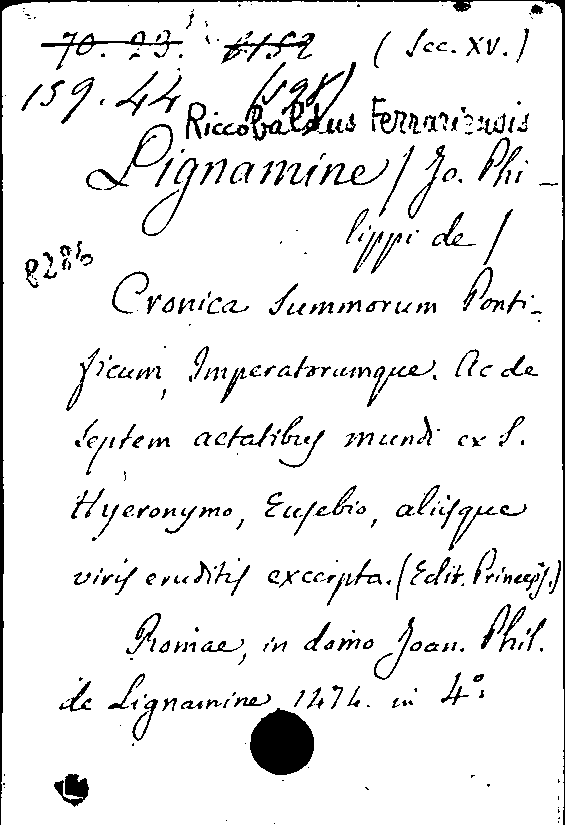 70. 23. 6152 (Sec. XV.)
159. 44 (198)
Riccobaldus Ferrariensis
Lignamine / Jo. Phi-
lippi de /
8286
Cronica Summorum Ponti-
ficum, Imperatorumque. Ac de
Septem aetatibus mundi ex S.
Hyeronymo, Eusebio, aliisque
viris eruditis excerpta. (Edit. Princeps.)
Romae, in domo Joan. Phil.
de Lignamine 1474. in 4°.